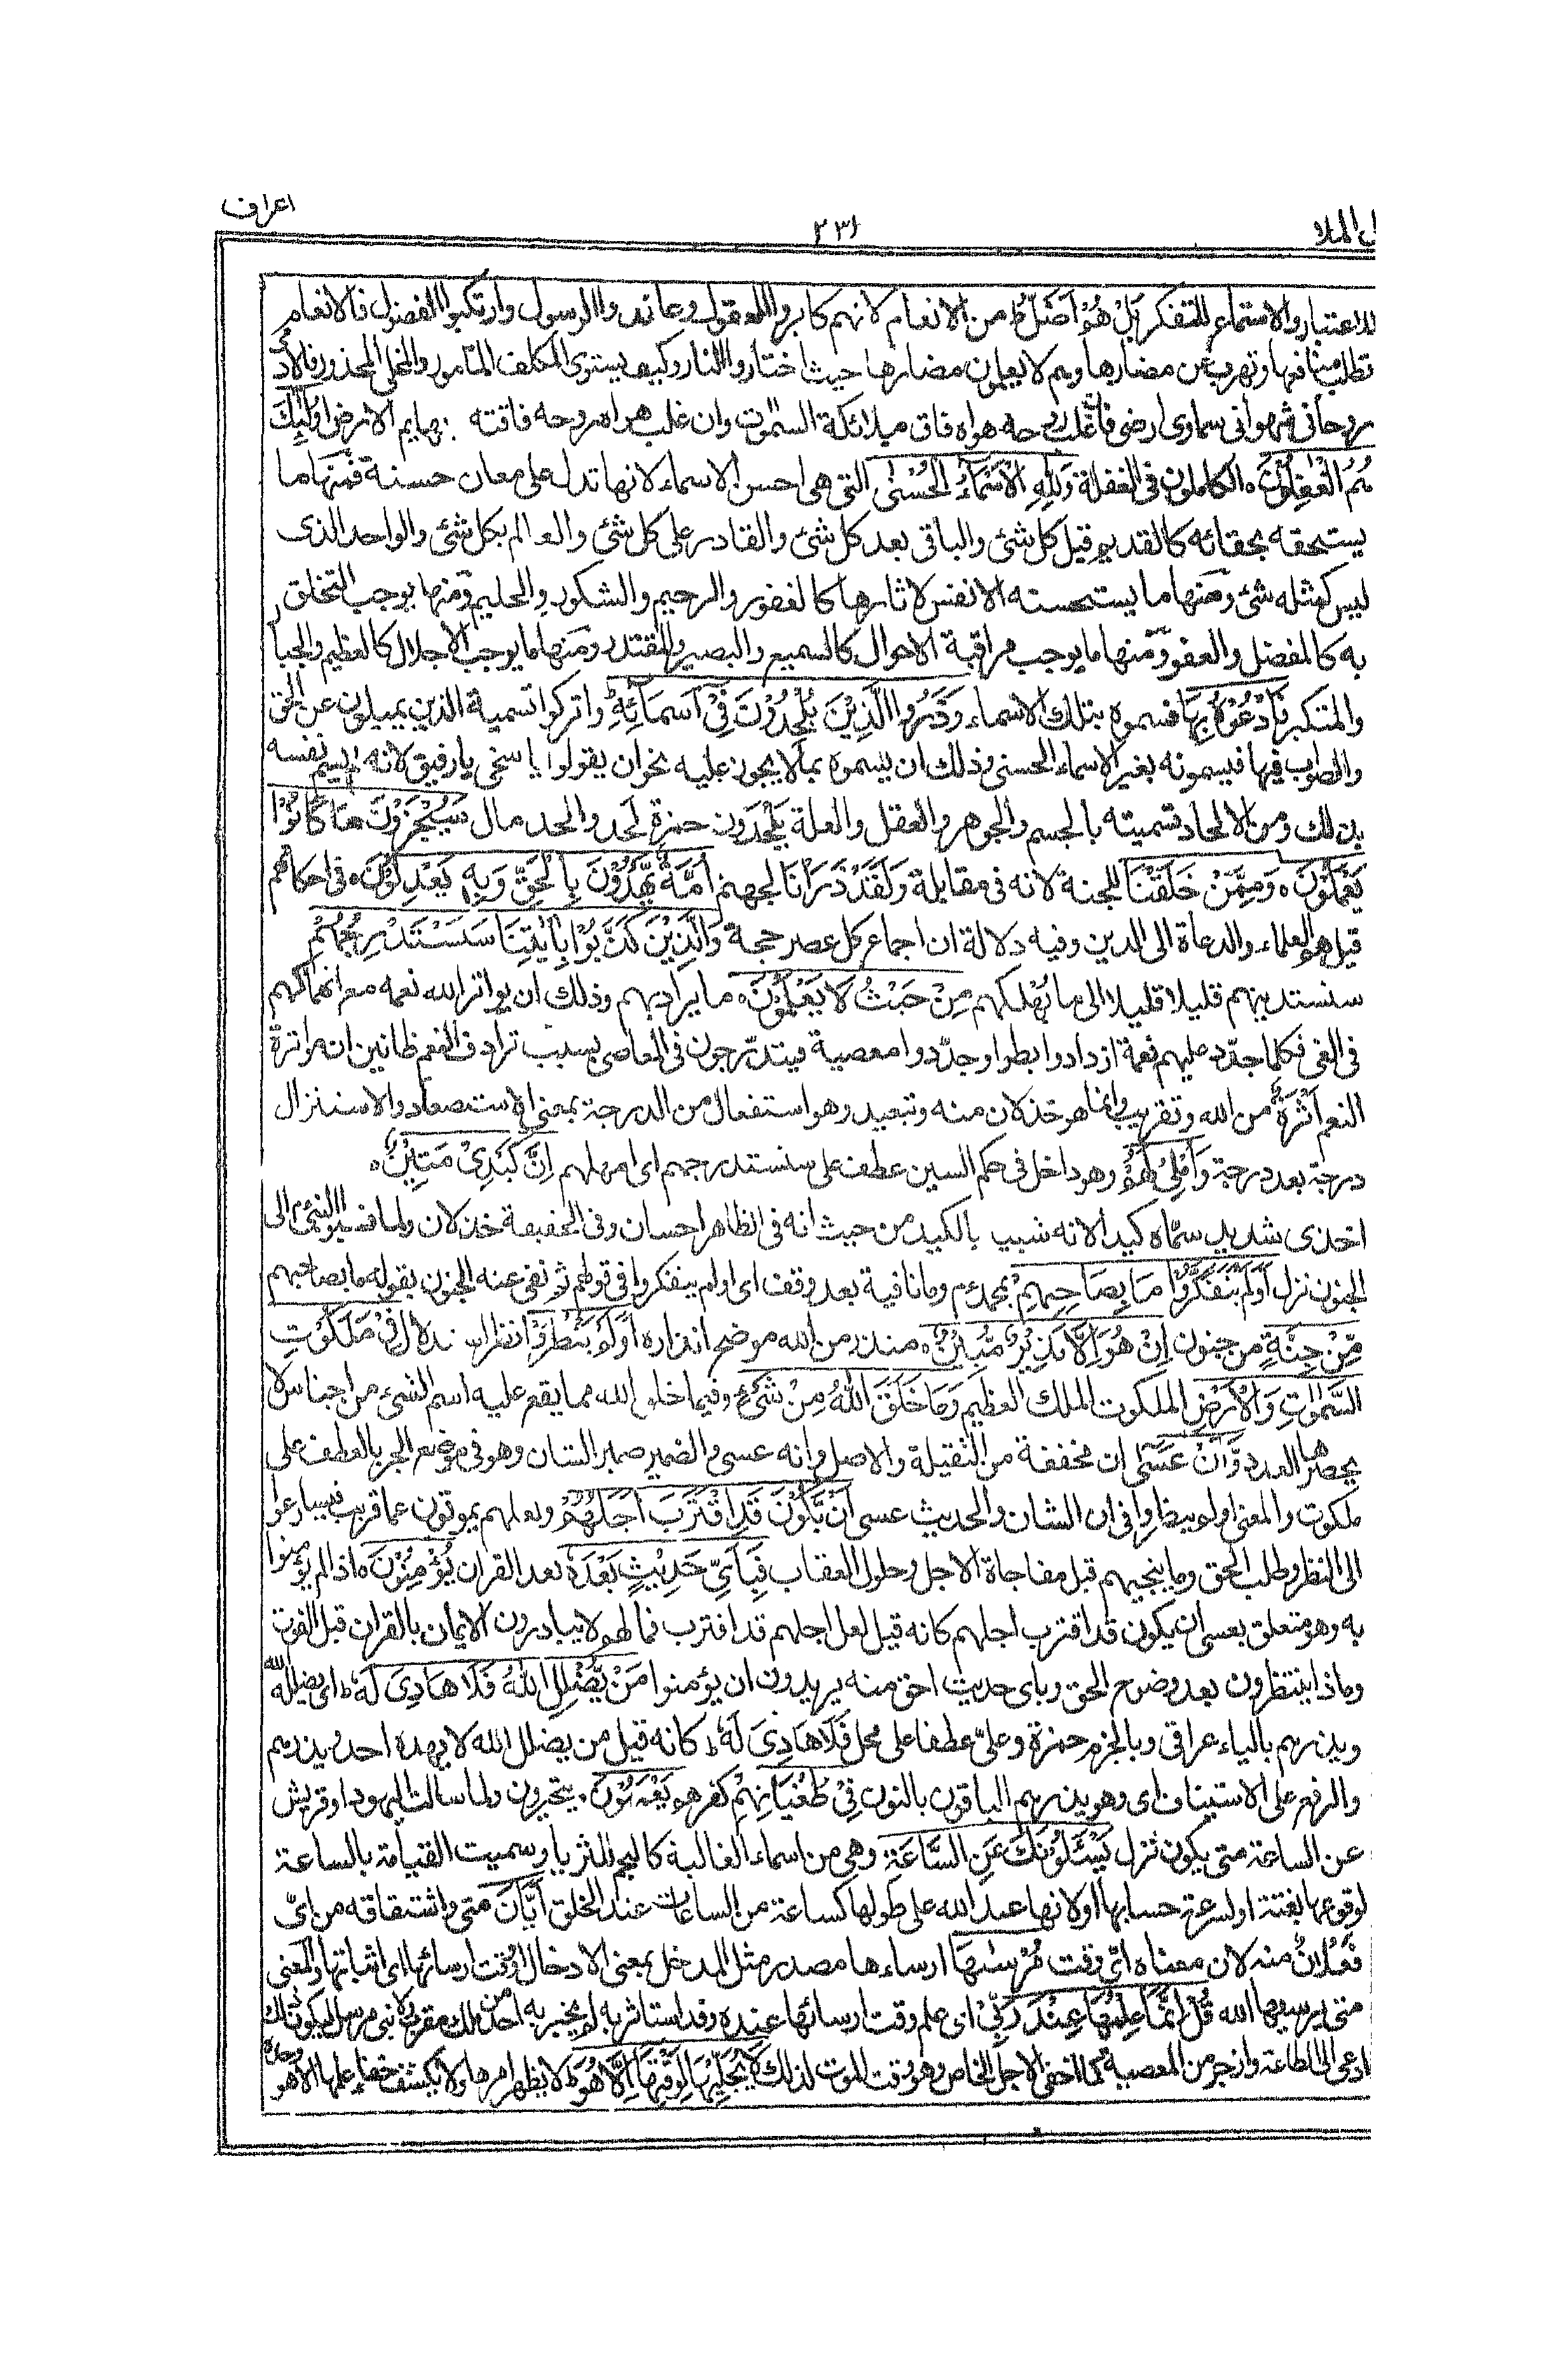 اعراف
٢٣١
ل الملا
للاعتبار والاستماع للتفكر بَلْ هُمْ اَضَلُّ ط من الانعام لانهم كابروا العقول وعاندوا الرسول وارتكبوا الفضول فالانعام
تطلب منافعها وتهرب عن مضارها وهم لا يعلمون مضارها حيث اختاروا النار وكيف يستوى المكلف المامور والمخلى المحذور فالاٰد
روحانى شهوانى سماوى ارضى فان غلب روحه هواه فاق ملائكة السمٰوت وان غلب هواه روحه فاقته بهايم الارض اُولٰٓئِكَ
هُمُ الْغٰفِلُوْنَ ه الكاملون فى الغفلة وَلِلّٰهِ الْاَسْمَآءُ الْحُسْنٰى التى هى احسن الاسماء لانها تدل على معان حسنة فمنها ما
يستحقه بحقائه كالقديم قبل كل شئ والباقى بعد كل شئ والقادر على كل شئ والعالم بكل شئ والواحد الذى
ليس كمثله شئ ومنها ما يستحسنه الانفس لاثارها كالغفور والرحيم والشكور والحليم ومنها يوجب التخلق
به كالمفضل والعفو ومنها ما يوجب مراقبة الاحوال كالسميع والبصير والمقتدر ومنها ما يوجب الاجلال كالعظيم والجبا
والمتكبر فَادْعُوْهُ بِهَا فسموه بتلك الاسماء وَذَرُوا الَّذِيْنَ يُلْحِدُوْنَ فِىْٓ اَسْمَآئِهٖ واتركوا تسمية الذين يميلون عن الحق
والصواب فيها فيسمونه بغير الاسماء الحسنى وذلك ان يسموه بما لا يجوز عليه نحو ان يقولوا يا سخى يا رفيق لانه لم يسم نفسه
بذلك ومن الالحاد تسميته بالجسم والجوهر والعقل والعلة يَلْحَدون حمزة لحد والحد مال سَيُجْزَوْنَ مَا كَانُوْا
يَعْمَلُوْنَ ه وَمِمَّنْ خَلَقْنَآ للجنة لانه فى مقابلة وَلَقَدْ ذَرَاْنَا لجهنم اُمَّةٌ يَّهْدُوْنَ بِالْحَقِّ وَبِهٖ يَعْدِلُوْنَ ه فى احكامهم
قيل هم العلماء والدعاة الى الدين وفيه دلالة ان اجماع كل عصر حجة وَالَّذِيْنَ كَذَّبُوْا بِاٰيٰتِنَا سَنَسْتَدْرِجُهُمْ
سنستدينهم قليلا قليلا الى ما يُهلكهم مِنْ حَيْثُ لَا يَعْلَمُوْنَ ه ما يراد بهم وذلك ان يواتر الله نعمه مع انهماكهم
فى الغى فكلما جدّد عليهم نعمة ازدادوا بطرا وجدّدوا معصية فيتدرّجون فى المعاصى بسبب ترادف النعم ظانين ان مواترة
النعم اَثَرَةٌ من الله وتقريب وانما هو خذلان منه وتبعيد وهو استفعال من الدرجة بمعنى الاستصعاد والاستنزال
درجة بعد درجة وَاُمْلِىْ لَهُمْ وهو داخل فى حكم السين عطف على سنستدرجهم اى امهلهم اِنَّ كَيْدِىْ مَتِيْنٌ ه
اخذى شديد سمّاه كيدا لانه شبيه بالكيد من حيث انه فى الظاهر احسان وفى الحقيقة خذلان ولما نسبوا النبىّ الى
الجنون نزل اَوَلَمْ يَتَفَكَّرُوْا مَا بِصَاحِبِهِمْ بمحمد وما نافية بعد وقف اى اولم يتفكروا فى قولهم ثم نفى عنه الجنون بقوله ما بصاحبهم
مِّنْ جِنَّةٍ من جنون اِنْ هُوَ اِلَّا نَذِيْرٌ مُّبِيْنٌ ه منذر من الله موضح انذاره اَوَلَمْ يَنْظُرُوْا نظر استدلال فِىْ مَلَكُوْتِ
السَّمٰوٰتِ وَالْاَرْضِ الملكوت الملك العظيم وَمَا خَلَقَ اللّٰهُ مِنْ شَىْءٍ وفيما خلق الله مما يقع عليه اسم الشىء من اجناس لا
يحصرها العدد وَّاَنْ عَسٰٓى ان مخففة من الثقيلة والاصل وانه عسى والضمير ضمير الشان وهو فى موضع الجر بالعطف على
ملكوت والمعنى اولم ينظروا فى ان الشان والحديث عسى اَنْ يَّكُوْنَ قَدِ اقْتَرَبَ اَجَلُهُمْ ولعلهم يموتون عما قريب فيسارعوا
الى النظر وطلب الحق وما ينجيهم قبل مفاجاة الاجل وحلول العقاب فَبِاَىِّ حَدِيْثٍۭ بَعْدَهٗ بعد القران يُؤْمِنُوْنَ ه اذا لم يؤمنوا
به وهو متعلق بعسى ان يكون قد اقترب اجلهم كانه قيل لعل اجلهم قد اقترب فما لهم لا يبادرون الايمان بالقران قبل الفوت
وماذا ينتظرون بعد وضوح الحق وباى حديث احق منه يريدون ان يؤمنوا مَنْ يُّضْلِلِ اللّٰهُ فَلَا هَادِىَ لَهٗ ط اى يضلله الله
ويذرهم بالياء عراقى وبالجزم حمزة وعلىّ عطفا على محل فَلَا هَادِىَ لَهٗ ط كانه قيل من يضلل الله لا يهده احد ويذرهم
والرفع على الاستيناف اى وهو يذرهم الباقون بالنون فِىْ طُغْيَانِهِمْ كفرهم يَعْمَهُوْنَ ه يتحيرون ولما سالت اليهود او قريش
عن الساعة متى يكون نزل يَسْئَلُوْنَكَ عَنِ السَّاعَةِ وهى من اسماء الغالبة كالنجم للثريا وسميت القيامة بالساعة
لوقوعها بغتة او لسرعة حسابها او لانها عند الله على طولها كساعة من الساعات عند الخلق اَيَّانَ متى واشتقاقه من اىّ
فَعْلَانٌ منه لان معناه اىّ وقت مُرْسٰىهَا ارساءها مصدر مثل المدخل بمعنى الادخال او وقت ارسائها اى اثباتها والمعنى
متى يرسيها الله قُلْ اِنَّمَا عِلْمُهَا عِنْدَ رَبِّىْ اى علم وقت ارسائها عنده وقد استاثر به لم يخبر به احدا من ملك مقرب ولا نبى مرسل ليكون ذلك
ادعى الى الطاعة وازجر من المعصية كما اخفى الاجل الخاص وهو وقت الموت لذلك لَا يُجَلِّيْهَا لِوَقْتِهَآ اِلَّا هُوَ ط لا يظهر امرها ولا يكشف خفاء علمها الا هو وحده